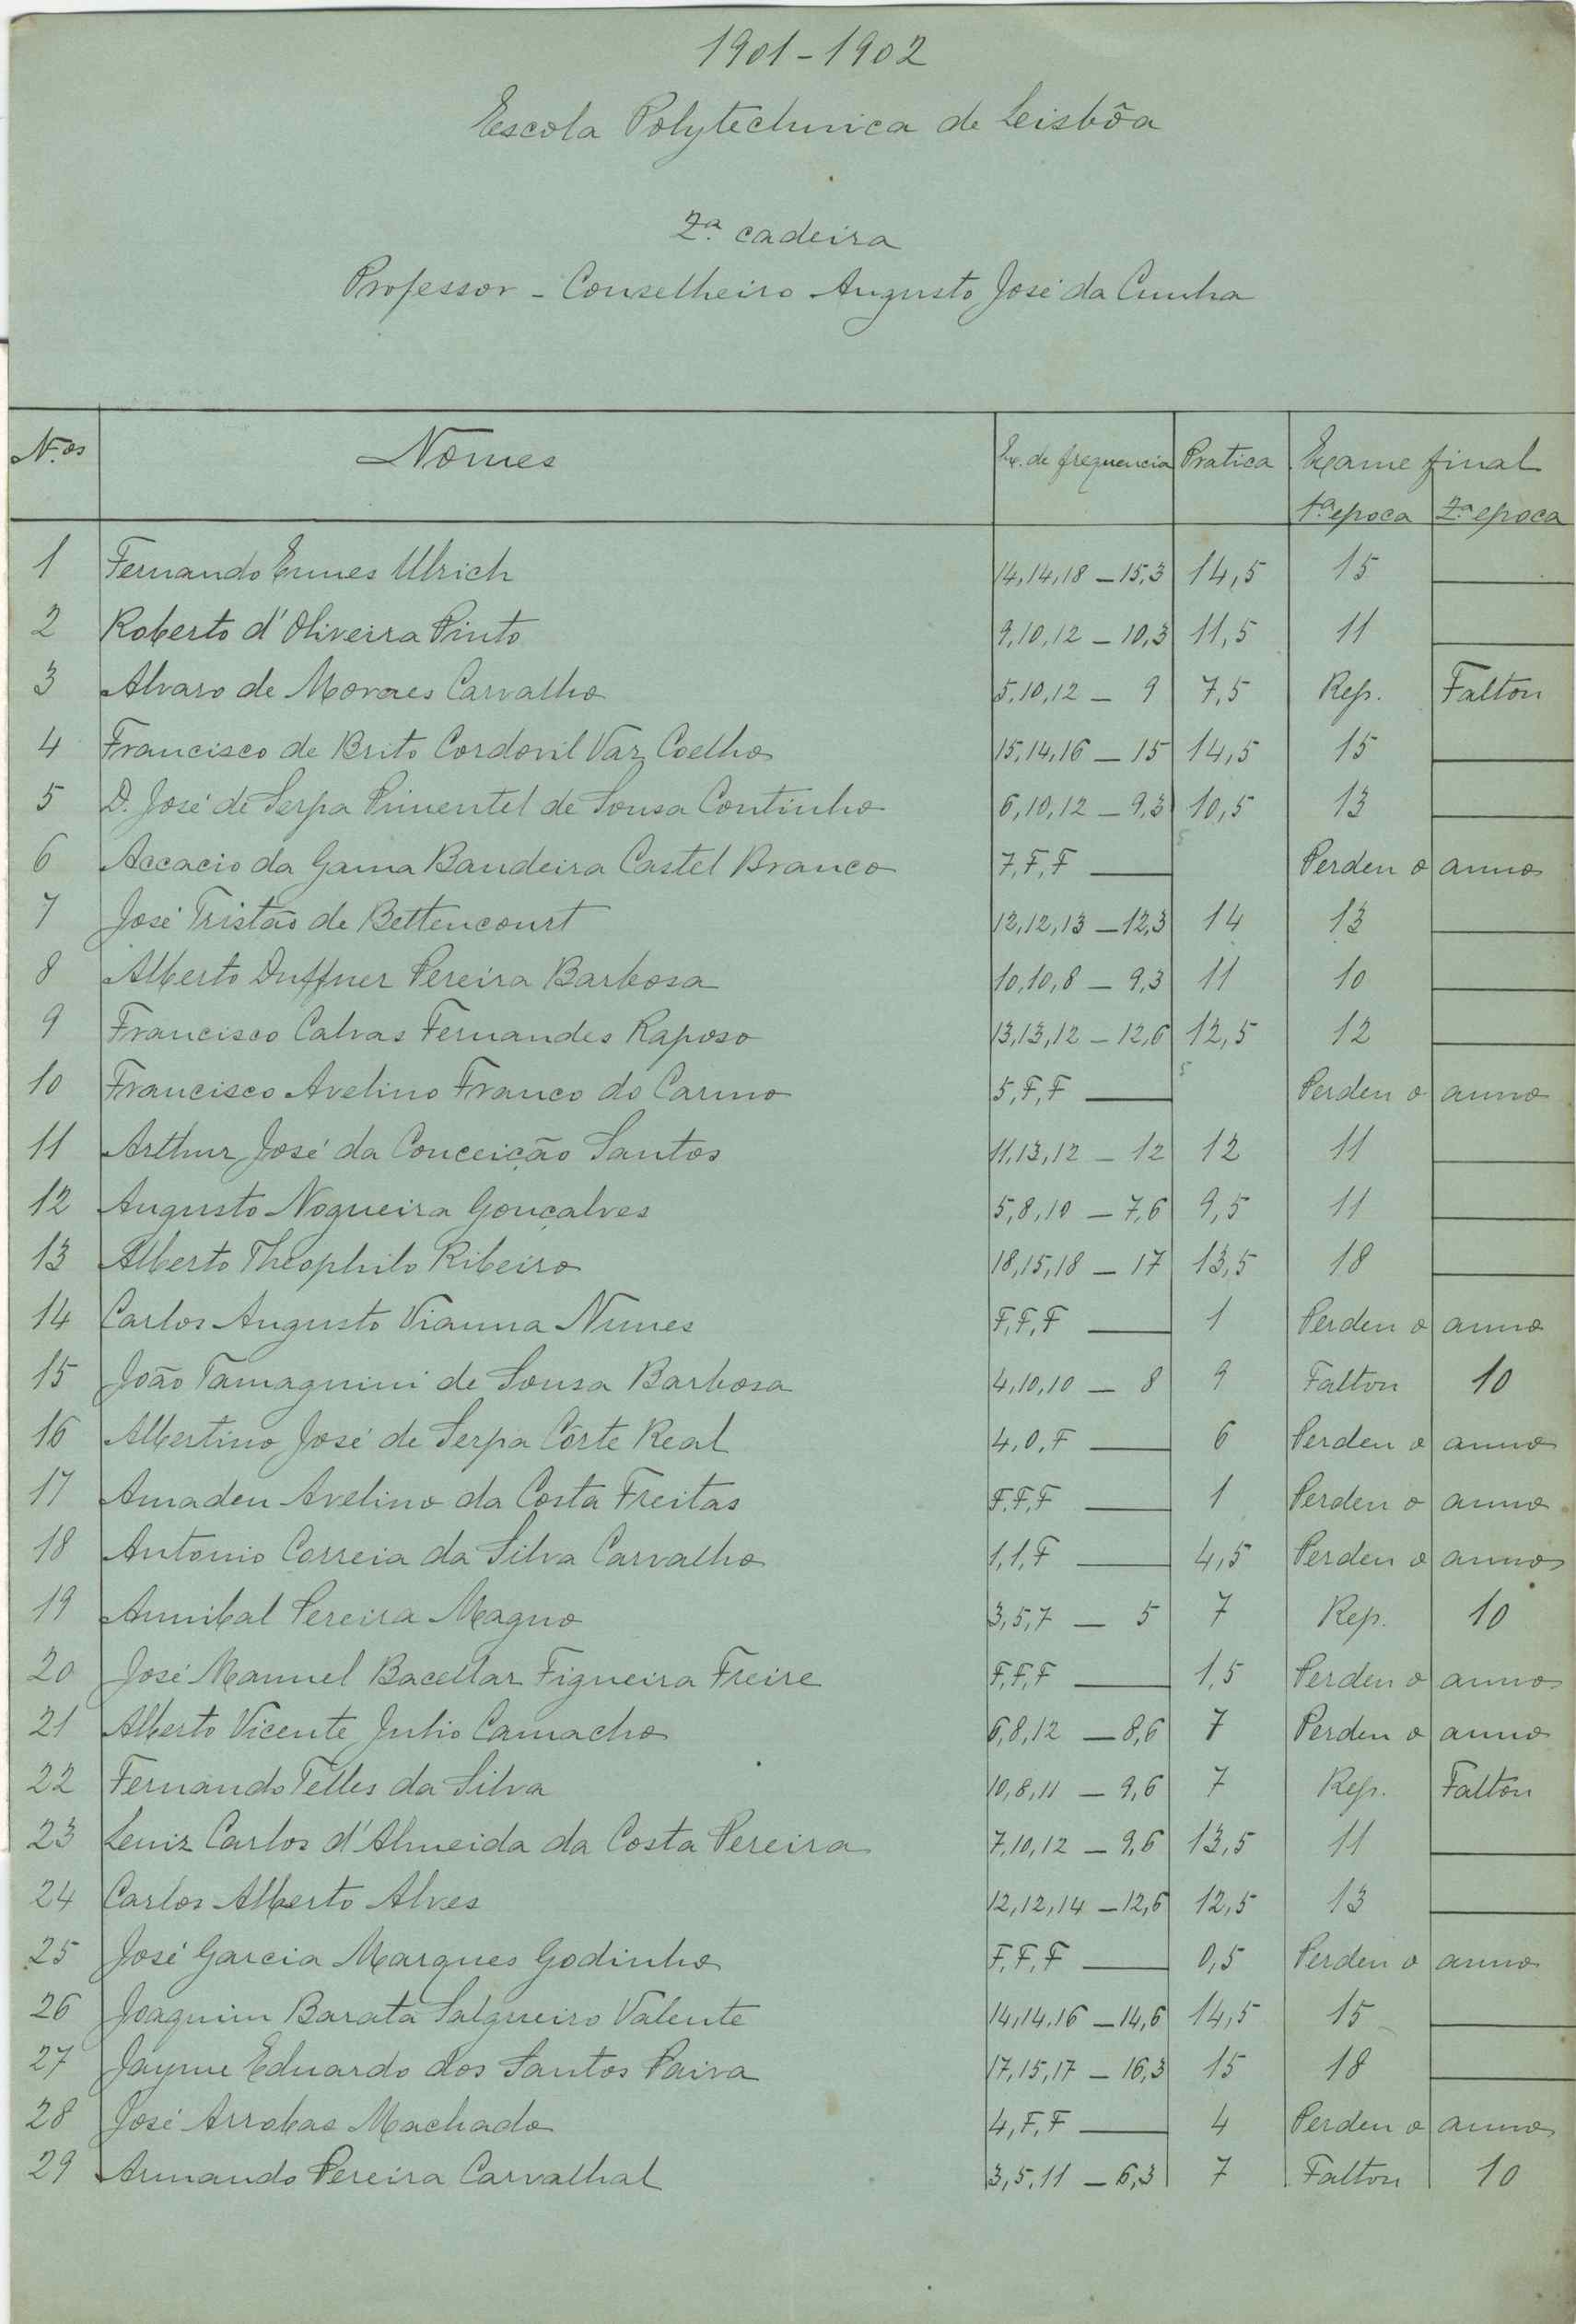 1901-1902
Escola Polytechnica de Lisbôa
2ª cadeira
Professor - Conselheiro Augusto José da Cunha
N.os Nomes Ex. de frequencia Pratica Exame final
1ª epoca 2ª epoca
1 Fernando Ennes Ulrich 14,14,18 — 15,3 14,5 15 —
2 Roberto d'Oliveira Pinto 9,10,12 — 10,3 11,5 11 —
3 Alvaro de Moraes Carvalho 5,10,12 — 9 7,5 Rep. Faltou
4 Francisco de Brito Cordovil Vaz Coelho 15,14,16 — 15 14,5 15 —
5 D. José de Serpa Pimentel de Sousa Coutinho 6,10,12 — 9,3 10,5 13 —
6 Accacio da Gama Bandeira Castel Branco 7,F,F — Perdeu o anno
7 José Tristão de Bettencourt 12,12,13 — 12,3 14 13 —
8 Alberto Duffner Pereira Barbosa 10,10,8 — 9,3 11 10 —
9 Francisco Calvas Fernandes Raposo 13,13,12 — 12,6 12,5 12 —
10 Francisco Avelino Franco do Carmo 5,F,F — Perdeu o anno
11 Arthur José da Conceição Santos 11,13,12 — 12 12 11 —
12 Augusto Nogueira Gonçalves 5,8,10 — 7,6 9,5 11 —
13 Alberto Theophilo Ribeiro 18,15,18 — 17 13,5 18 —
14 Carlos Augusto Vianna Nunes F,F,F — 1 Perdeu o anno
15 João Tamagnini de Sousa Barbosa 4,10,10 — 8 9 Faltou 10
16 Albertino José de Serpa Côrte Real 4,0,F — 6 Perdeu o anno
17 Amadeu Avelino da Costa Freitas F,F,F — 1 Perdeu o anno
18 Antonio Correia da Silva Carvalho 1,1,F — 4,5 Perdeu o anno
19 Annibal Pereira Magno 3,5,7 — 5 7 Rep. 10
20 José Manuel Bacellar Figueira Freire F,F,F — 1,5 Perdeu o anno
21 Alberto Vicente Julio Camacho 6,8,12 — 8,6 7 Perdeu o anno
22 Fernando Telles da Silva 10,8,11 — 9,6 7 Rep. Faltou
23 Luiz Carlos d'Almeida da Costa Pereira 7,10,12 — 9,6 13,5 11 —
24 Carlos Alberto Alves 12,12,14 — 12,6 12,5 13 —
25 José Garcia Marques Godinho F,F,F — 0,5 Perdeu o anno
26 Joaquim Barata Salgueiro Valente 14,14,16 — 14,6 14,5 15 —
27 Jayme Eduardo dos Santos Paiva 17,15,17 — 16,3 15 18 —
28 José Arrobas Machado 4,F,F — 4 Perdeu o anno
29 Armando Pereira Carvalhal 3,5,11 — 6,3 7 Faltou 10